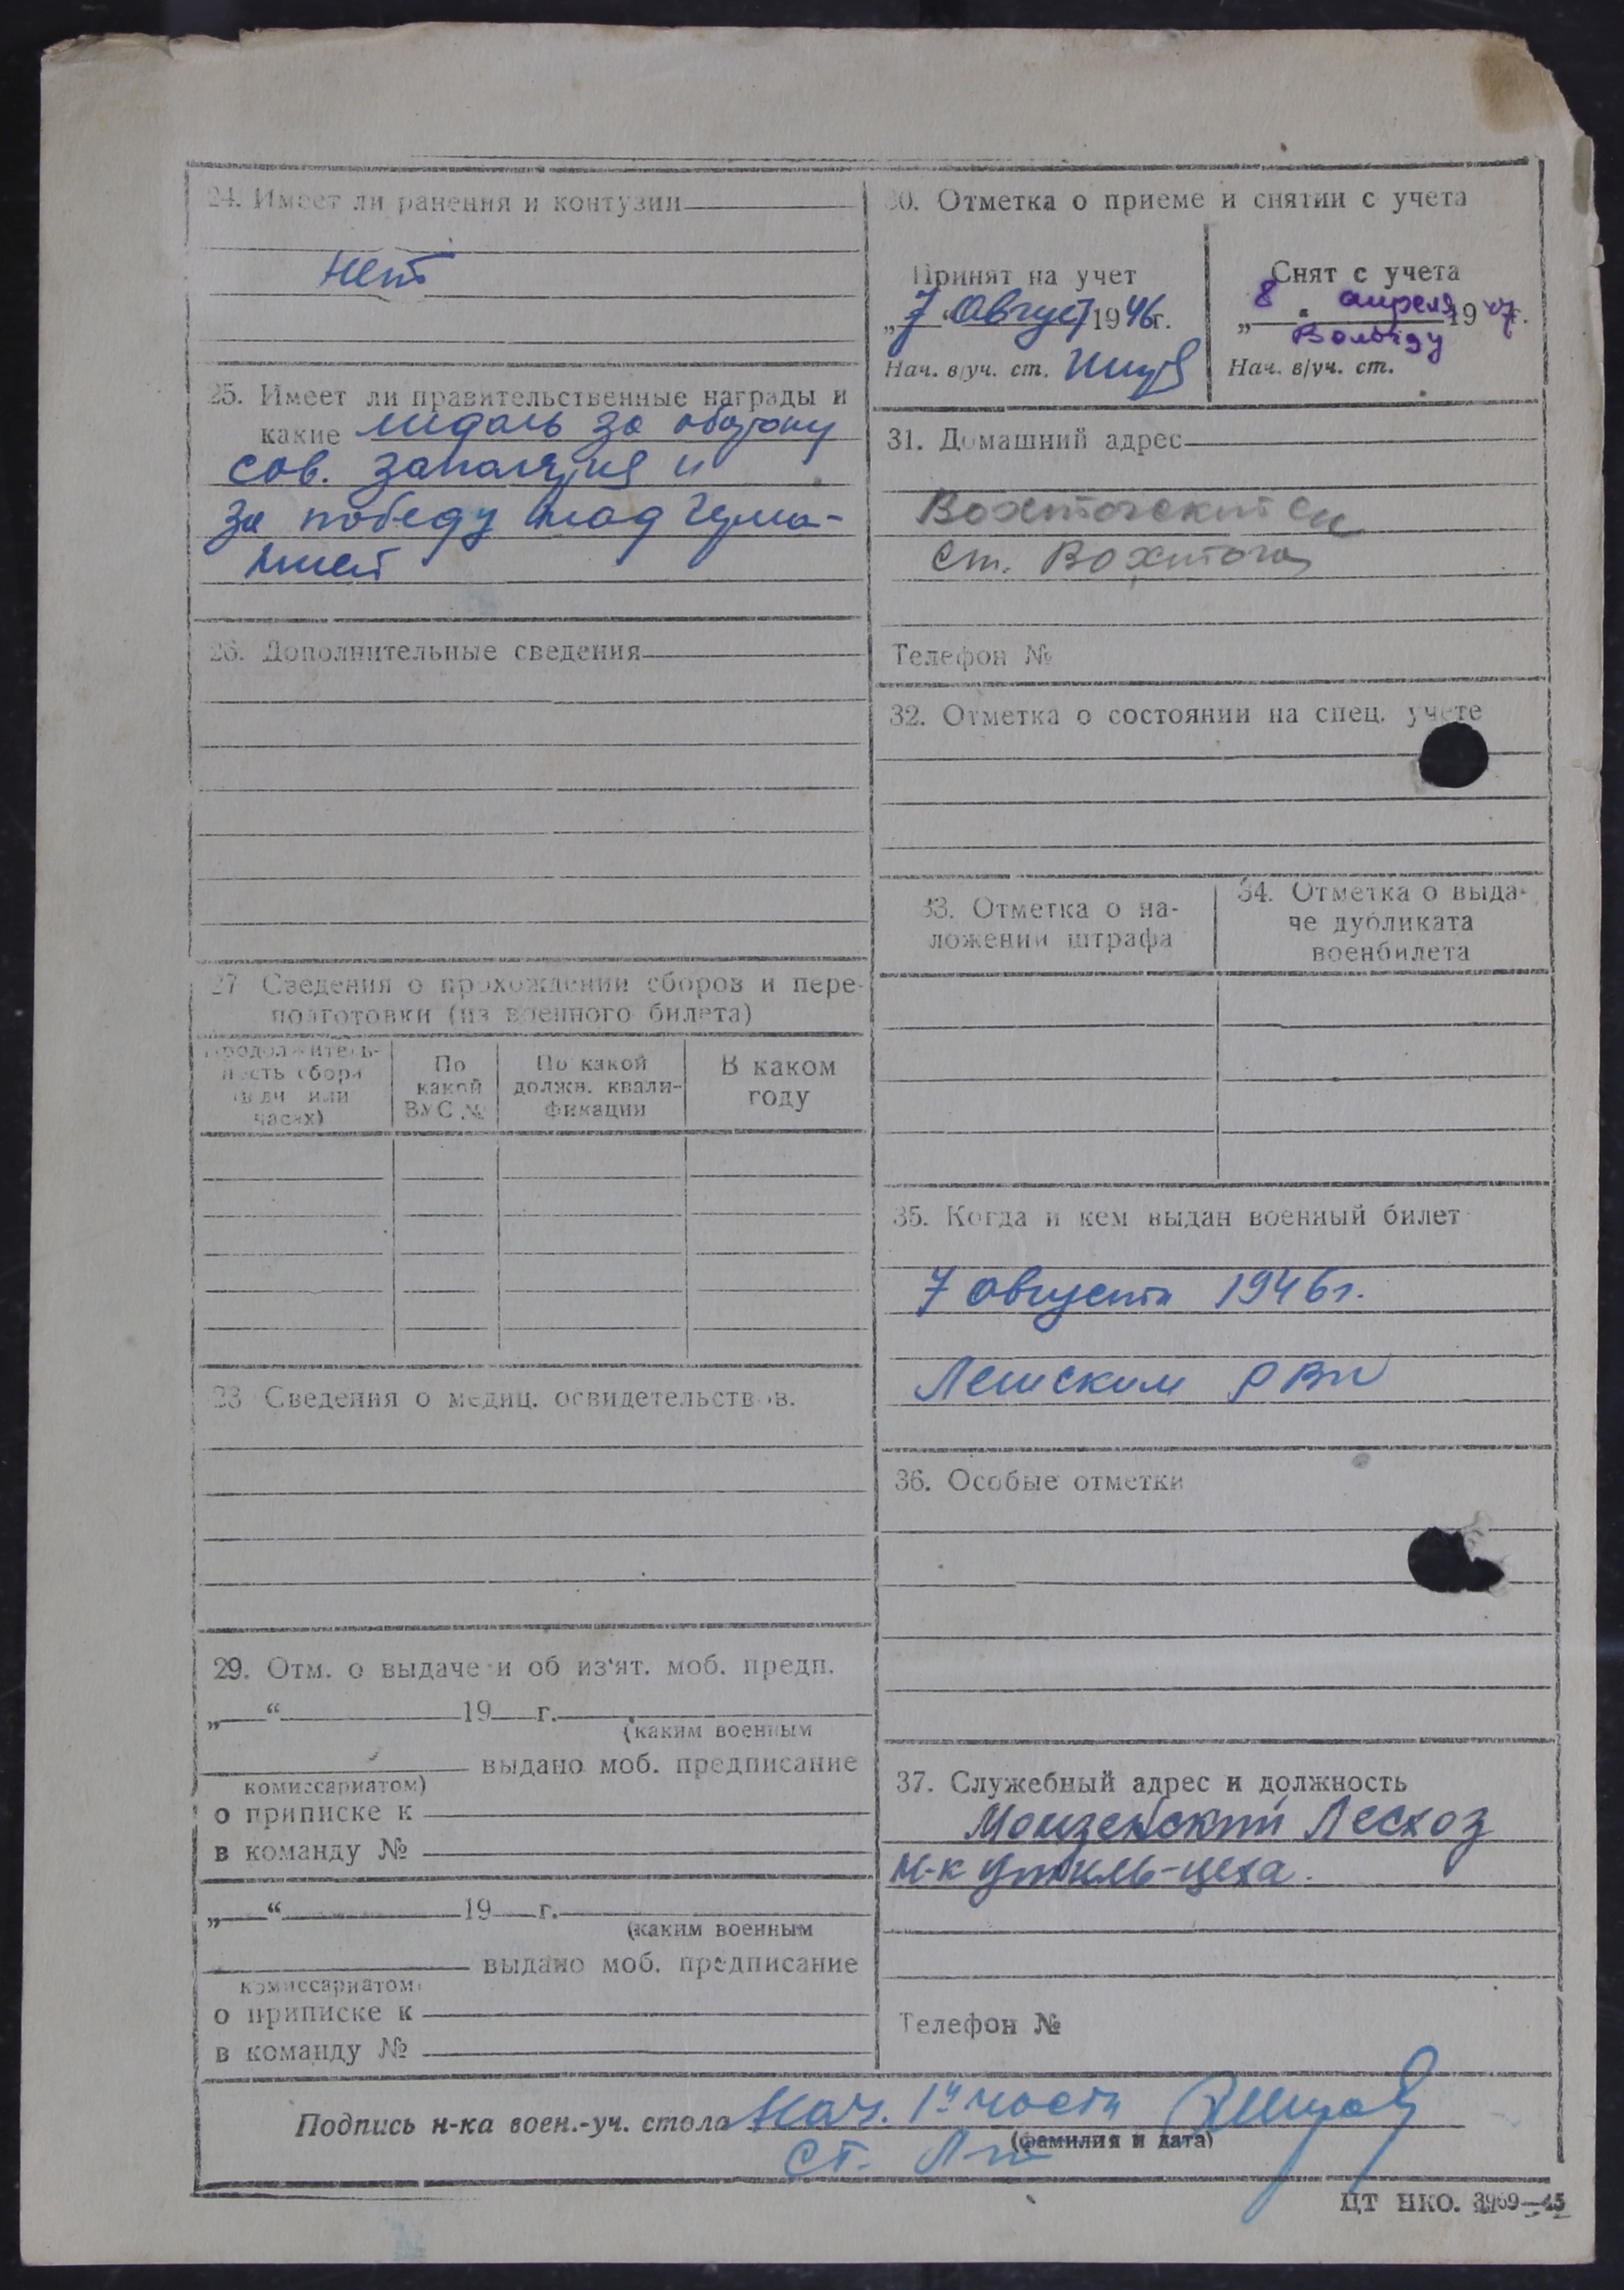 24. Имеет ли ранения и контузии
нет
25. Имеет ли правительственные награды и
какие медаль за оборону
сов. заполярия и
за победу над Герма-
нией
26. Дополнительные сведения
27 Сведения о прохождении сборов и пере-
подготовки (из военного билета)
Продолжитель-
ность сбора
(в дн или
часах)
По
какой
ВУС №
По какой
должн. квали-
фикации
В каком
году
28 Сведения о медиц. освидетельствов.
29. Отм. о выдаче и об из'ят. моб. предп.
„ “ 19 г.
(каким военным
выдано моб. предписание
комиссариатом)
о приписке к
в команду №
„ “ 19 г.
(каким военным
выдано моб. предписание
комиссариатом)
о приписке к
в команду №
30. Отметка о приеме и снятии с учета
Принят на учет
„7“ Август 1946г.
Нач. в/уч. ст.
Снят с учета
„8" апреля 1947г.
Вологду
Нач. в/уч. ст.
31. Домашний адрес
Вохтогский с/с
ст. Вохтога
Телефон №
32. Отметка о состоянии на спец. учете
33. Отметка о на-
ложении штрафа
34. Отметка о выда-
че дубликата
военбилета
35. Когда и кем выдан военный билет
7 августа 1946г.
Лежским РВК
36. Особые отметки
37. Служебный адрес и должность
Монзенский Лесхоз
Н-к Утиль-цеха.
Телефон №
Подпись н-ка воен.-уч. стола Нач. 1й части
(фамилия и дата)
ст. Л-т
ЦТ НКО. 3969—45